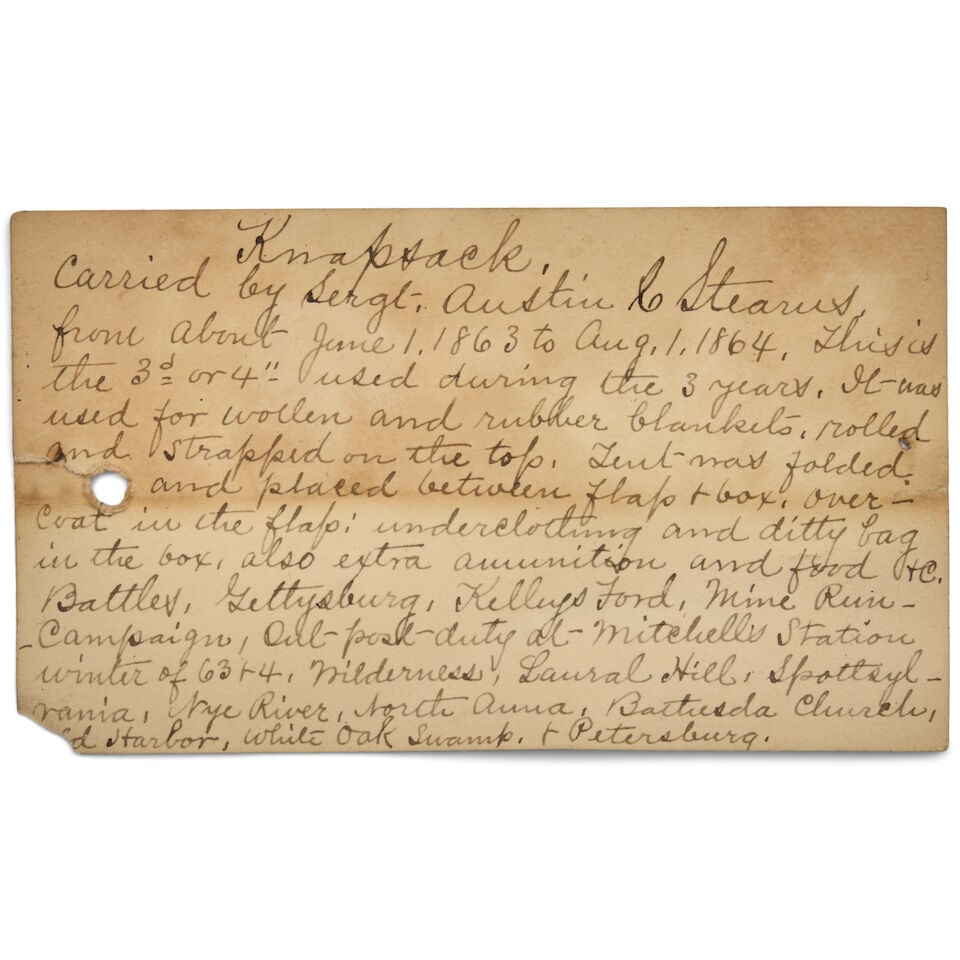 Knapsack.
Carried by Sergt. Austin C Stearns,
from about June 1. 1863 to Aug. 1. 1864. This is
the 3d or 4" used during the 3 years. It was
used for wollen and rubber blankets, rolled
and strapped on the top. Tent was folded
and placed between flap + box, over-
coat in the flap; underclothing and ditty bag
in the box, also extra amunition and food &C.
Battles, Gettysburg, Kelleys Ford, Mine Run-
-Campaign, Out-post-duty at-Mitchells Station
winter of 63+4, Wilderness, Laural Hill, Spottsyl-
vania, Nye River, North Anna, Bathesda Church,
ld Harbor, White Oak Swamp. + Petersburg.